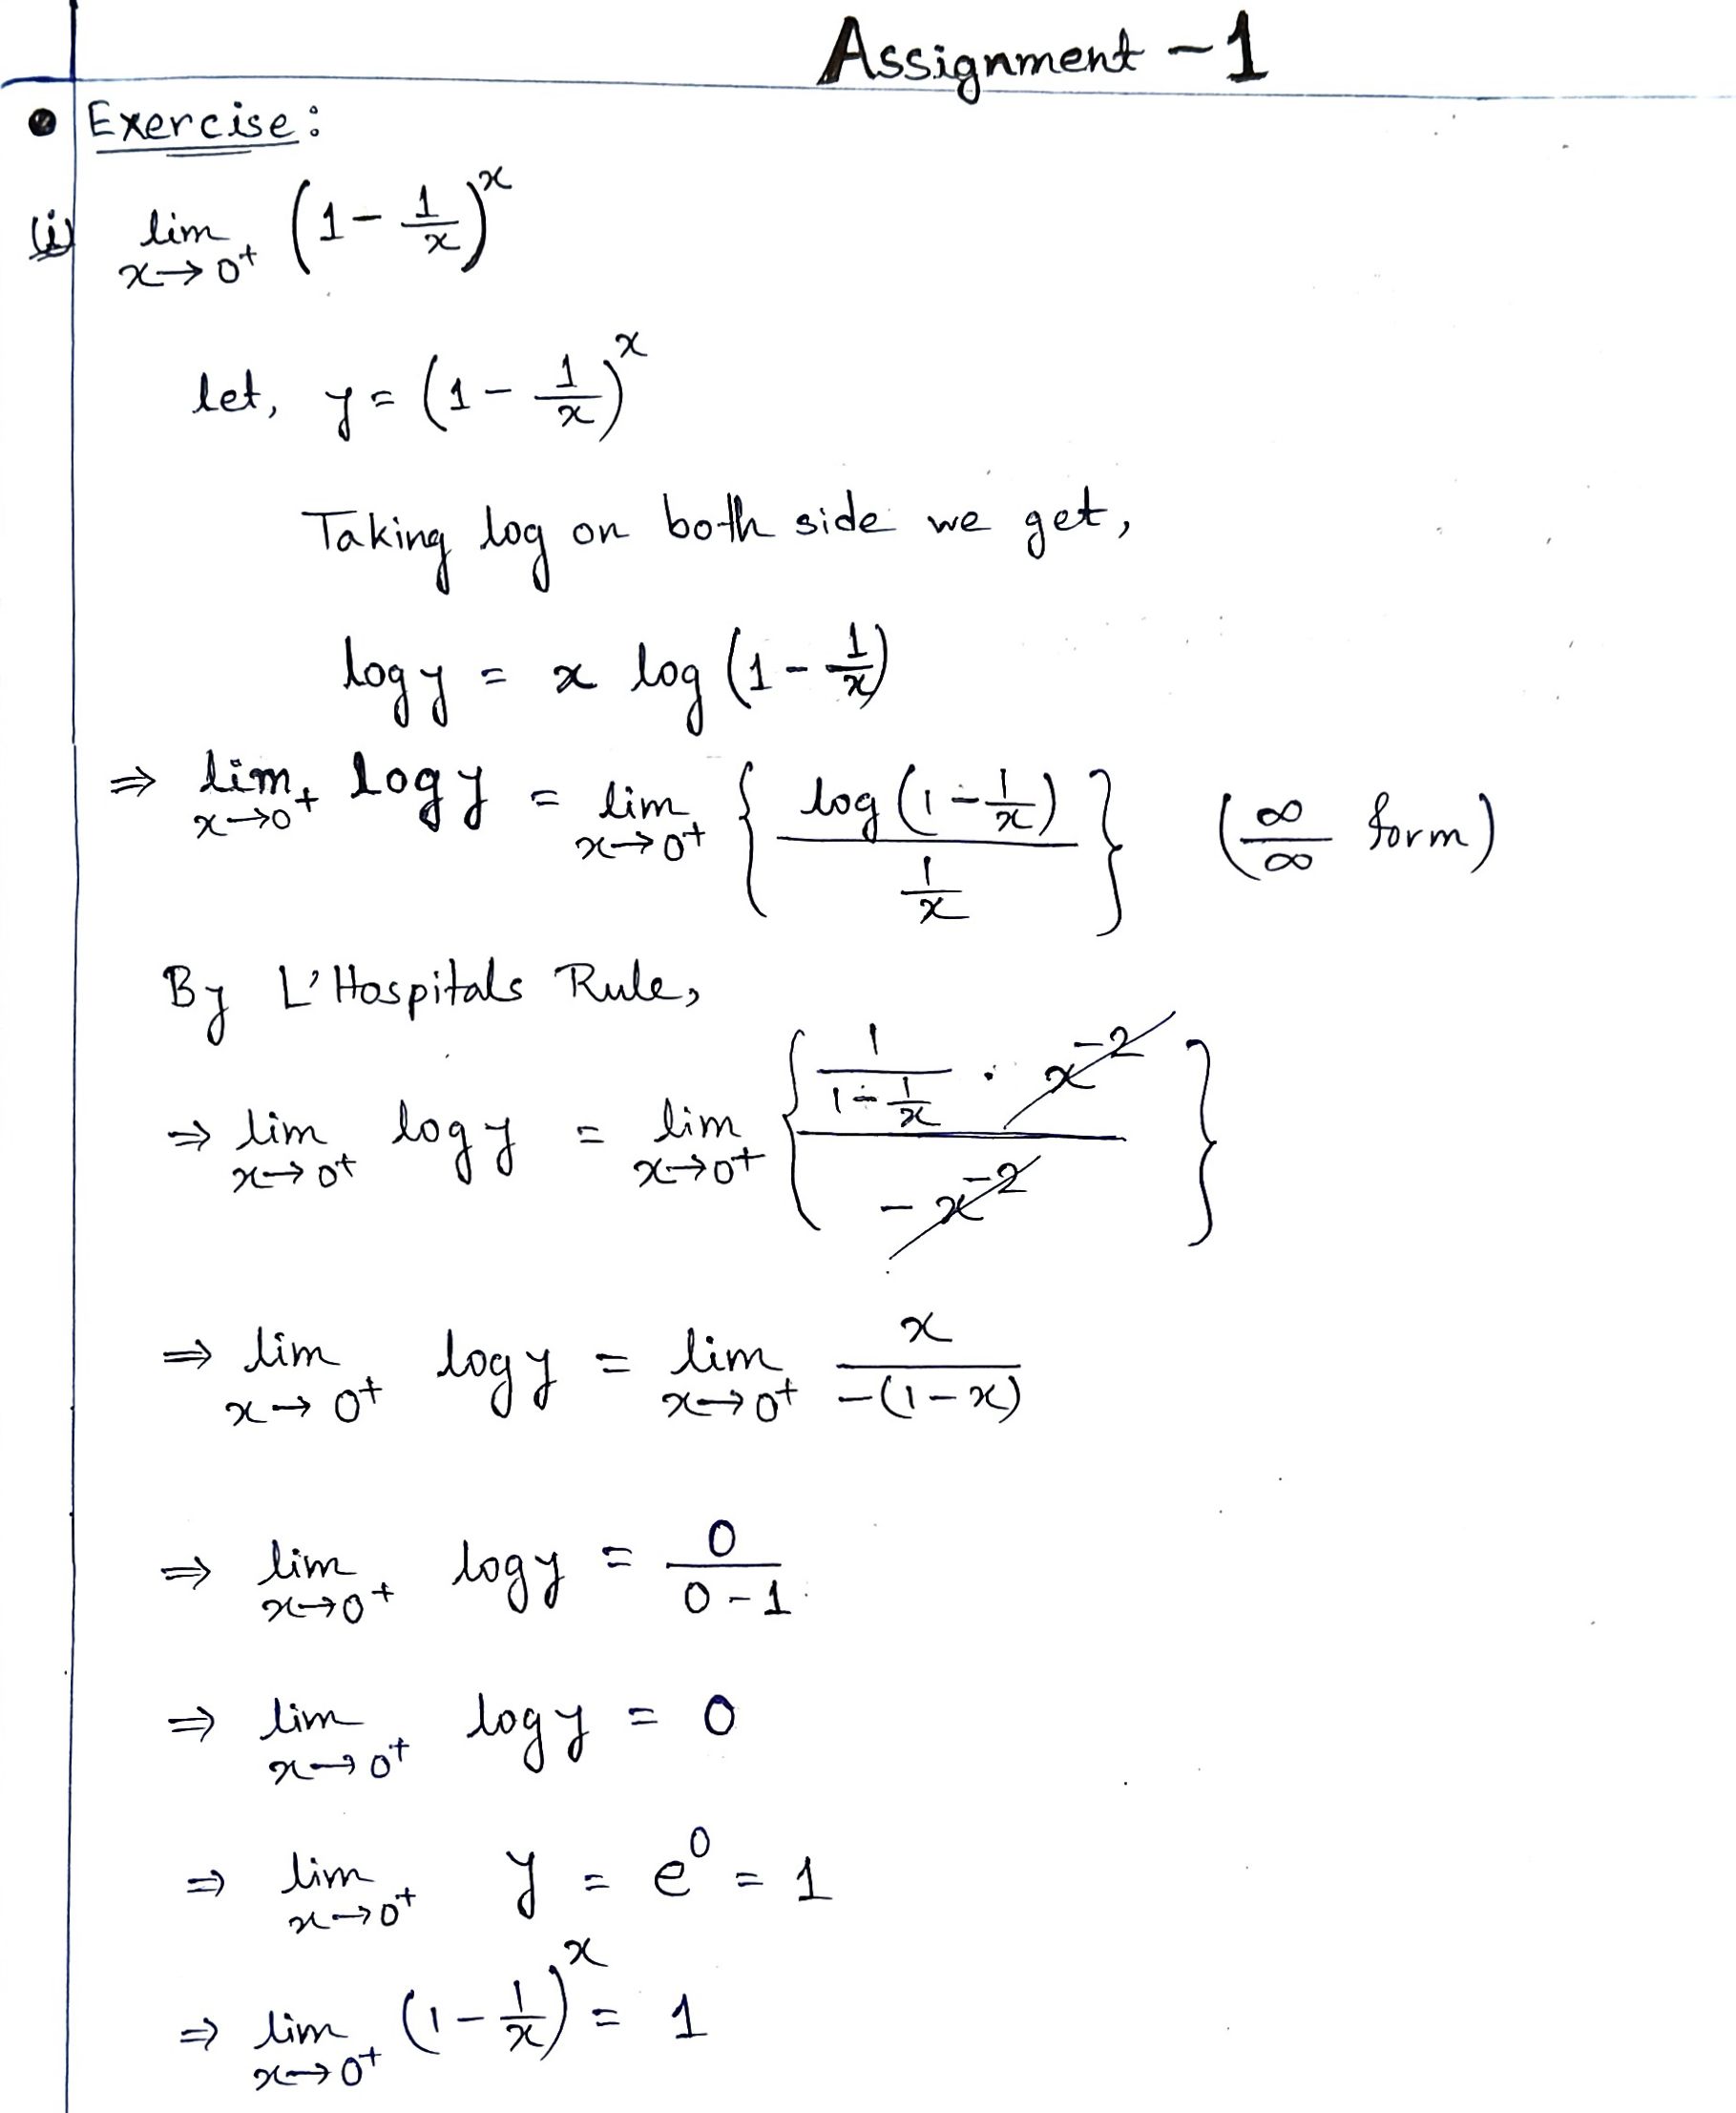 Assignment - 1
• Exercise:
(i) lim x→0⁺ (1 - 1/x)^x
let, y = (1 - 1/x)^x
Taking log on both side we get,
log y = x log (1 - 1/x)
⇒ lim x→0⁺ log y = lim x→0⁺ { log (1 - 1/x) / (1/x) } (∞/∞ form)
By L'Hospitals Rule,
⇒ lim x→0⁺ log y = lim x→0⁺ { (1/(1 - 1/x) · x^-2) / (-x^-2) }
⇒ lim x→0⁺ log y = lim x→0⁺ x / -(1-x)
⇒ lim x→0⁺ log y = 0 / (0-1)
⇒ lim x→0⁺ log y = 0
⇒ lim x→0⁺ y = e^0 = 1
⇒ lim x→0⁺ (1 - 1/x)^x = 1